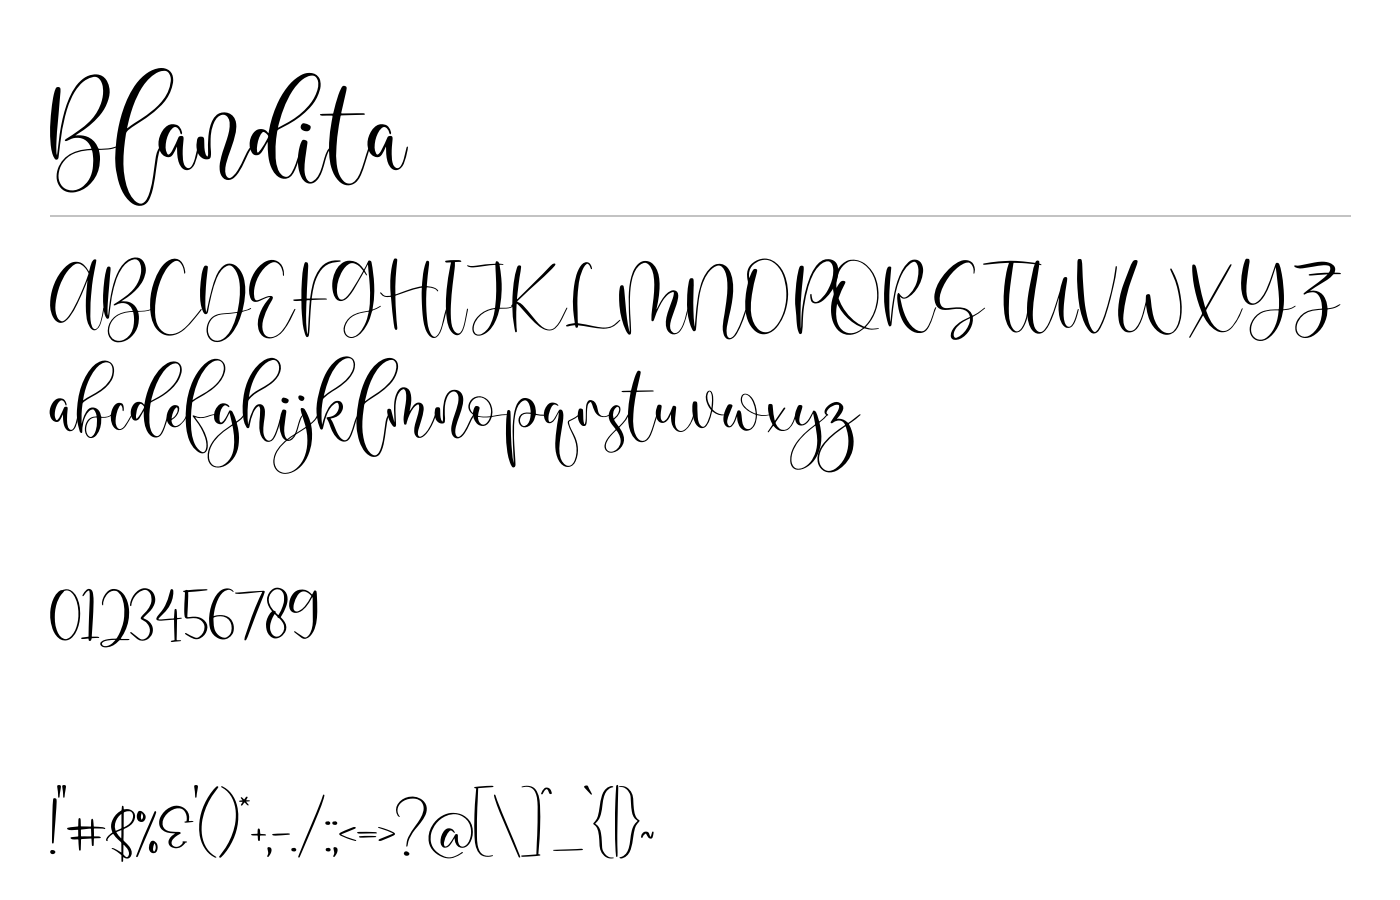 Blandita
ABCDEFGHIJKLMNOPQRSTUVWXYZ
abcdefghijklmnopqrstuvwxyz
0123456789
!"#$%&'()*+,-./:;<=>?@[\]^_`{|}~